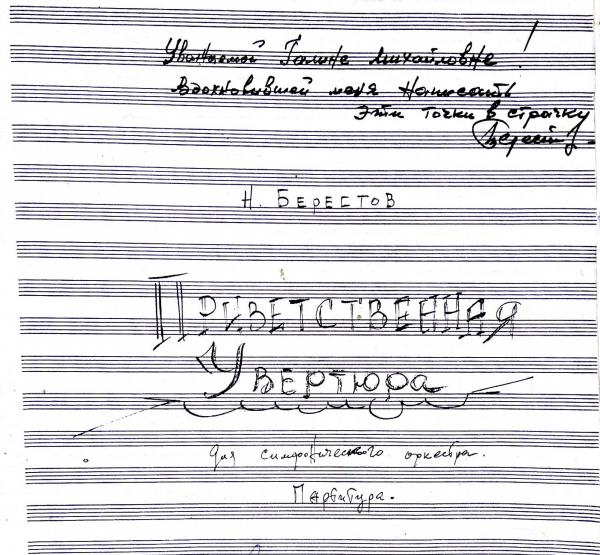 Уважаемой Галине Михайловне!
Вдохновившей меня написать
Эти точки в строчку
Берест
Н. БЕРЕСТОВ
ПРИВЕТСТВЕННАЯ
УВЕРТЮРА
для симфонического оркестра.
Партитура.